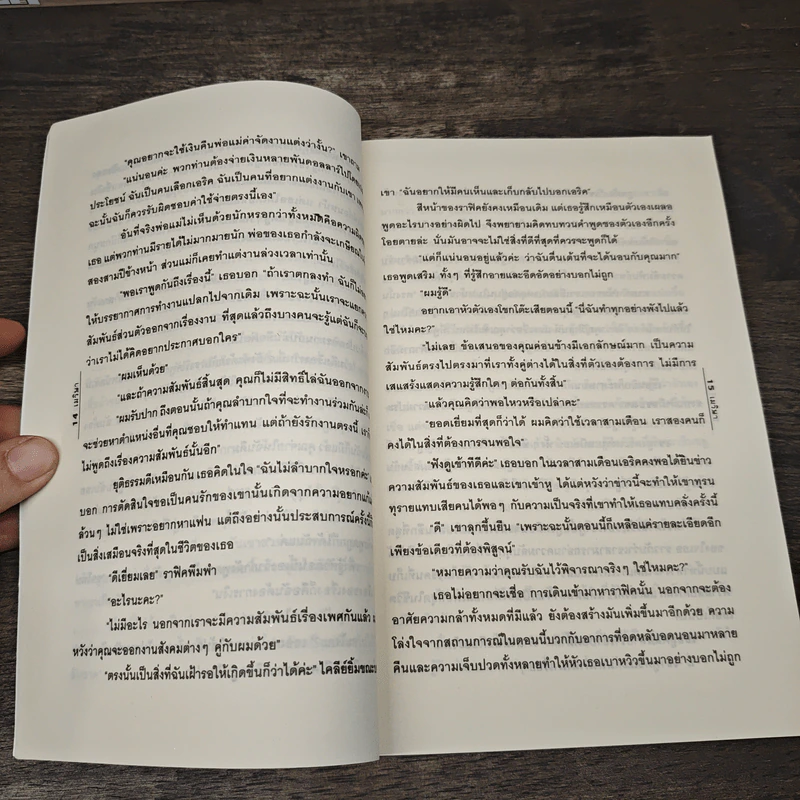 "คุณอยากจะใช้เงินคืนพ่อแม่ค่าจัดงานแต่งว่างั้น?" เขาถาม
"แน่นอนค่ะ พวกท่านต้องจ่ายเงินหลายพันดอลลาร์ไปโดย
ประโยชน์ ฉันเป็นคนเลือกเอริค ฉันเป็นคนที่อยากแต่งงานกับเขา
ฉะนั้นฉันก็ควรรับผิดชอบค่าใช้จ่ายตรงนี้เอง"
อันที่จริงพ่อแม่ไม่เห็นด้วยนักหรอกว่าทั้งหมดคือความผิด
เธอ แต่พวกท่านมีรายได้ไม่มากมายนัก พ่อของเธอกำลังจะเกษียณ
สองสามปีข้างหน้า ส่วนแม่ก็เคยทำแต่งานล่วงเวลาเท่านั้น
"พอเราพูดกันถึงเรื่องนี้" เธอบอก "ถ้าเราตกลงทำ ฉันก็ไม่
ให้บรรยากาศการทำงานแปลกไปจากเดิม เพราะฉะนั้นเราจะแยก
สัมพันธ์ส่วนตัวออกจากเรื่องงาน ที่สุดแล้วถึงบางคนจะรู้แต่ฉันก็
ว่าเราไม่ได้คิดอยากประกาศบอกใคร"
"ผมเห็นด้วย"
"และถ้าความสัมพันธ์สิ้นสุด คุณก็ไม่มีสิทธิ์ไล่ฉันออกจาก
"ผมรับปาก ถึงตอนนั้นถ้าคุณลำบากใจที่จะทำงานร่วมกัน
จะช่วยหาตำแหน่งอื่นที่คุณชอบให้ทำแทน แต่ถ้ายังรักงานตรงนี้
ไม่พูดถึงเรื่องความสัมพันธ์นั้นอีก"
ยุติธรรมดีเหมือนกัน เธอคิดในใจ "ฉันไม่ลำบากใจหรอกค่ะ"
บอก การตัดสินใจขอเป็นคนรักของเขานั้นเกิดจากความอยาก
ล้วนๆ ไม่ใช่เพราะอยากหาแฟน แต่ถึงอย่างนั้นประสบการณ์ครั้งนี้
เป็นสิ่งเสมือนจริงที่สุดในชีวิตของเธอ
"ดีเยี่ยมเลย" ราฟิคพึมพำ
"อะไรนะคะ?"
"ไม่มีอะไร นอกจากเราจะมีความสัมพันธ์เรื่องเพศกันแล้ว
หวังว่าคุณจะออกงานสังคมต่างๆ คู่กับผมด้วย"
"ตรงนั้นเป็นสิ่งที่ฉันเฝ้ารอให้เกิดขึ้นก็ว่าได้ค่ะ" ไคลีย์ยิ้มขณะ
14 เมริษา
เขา "ฉันอยากให้มีคนเห็นและเก็บกลับไปบอกเอริค"
สีหน้าของราฟิคยังคงเหมือนเดิม แต่เธอรู้สึกเหมือนตัวเองเผลอ
พูดอะไรบางอย่างผิดไป จึงพยายามคิดทบทวนคำพูดของตัวเองอีกครั้ง
โอยตายล่ะ นั่นมันอาจจะไม่ใช่สิ่งที่ดีที่สุดที่ควรจะพูดก็ได้
"แต่ก็แน่นอนอยู่แล้วค่ะ ว่าฉันตื่นเต้นที่จะได้นอนกับคุณมาก"
เธอพูดเสริม ทั้งๆ ที่รู้สึกอายและอึดอัดอย่างบอกไม่ถูก
"ผมรู้ดี"
อยากเอาหัวตัวเองโขกโต๊ะเสียตอนนี้ "นี่ฉันทำทุกอย่างพังไปแล้ว
ใช่ไหมคะ?"
"ไม่เลย ข้อเสนอของคุณค่อนข้างมีเอกลักษณ์มาก เป็นความ
สัมพันธ์ตรงไปตรงมาที่เราทั้งคู่ต่างได้ในสิ่งที่ตัวเองต้องการ ไม่มีการ
เสแสร้งแสดงความรู้สึกใดๆ ต่อกันทั้งสิ้น"
"แล้วคุณคิดว่าพอไหวหรือเปล่าคะ"
"ยอดเยี่ยมที่สุดก็ว่าได้ ผมคิดว่าใช้เวลาสามเดือน เราสองคนก็
คงได้ในสิ่งที่ต้องการจนพอใจ"
"ฟังดูเข้าทีดีค่ะ" เธอบอก ในเวลาสามเดือนเอริคคงพอได้ยินข่าว
ความสัมพันธ์ของเธอและเขาเข้าหู ได้แต่หวังว่าข่าวนี้จะทำให้เขาทุรน
ทุรายแทบเสียคนได้พอๆ กับความเป็นจริงที่เขาทำให้เธอแทบคลั่งครั้งนี้
"ดี" เขาลุกขึ้นยืน "เพราะฉะนั้นตอนนี้ก็เหลือแค่รายละเอียดอีก
เพียงข้อเดียวที่ต้องพิสูจน์"
"หมายความว่าคุณรับฉันไว้พิจารณาจริงๆ ใช่ไหมคะ?"
เธอไม่อยากจะเชื่อ การเดินเข้ามาหาราฟิคนั้น นอกจากจะต้อง
อาศัยความกล้าทั้งหมดที่มีแล้ว ยังต้องสร้างมันเพิ่มขึ้นมาอีกด้วย ความ
โล่งใจจากสถานการณ์ในตอนนี้บวกกับอาการที่อดหลับอดนอนมาหลาย
คืนและความเจ็บปวดทั้งหลายทำให้หัวเธอเบาหวิวขึ้นมาอย่างบอกไม่ถูก
15 เมริษา